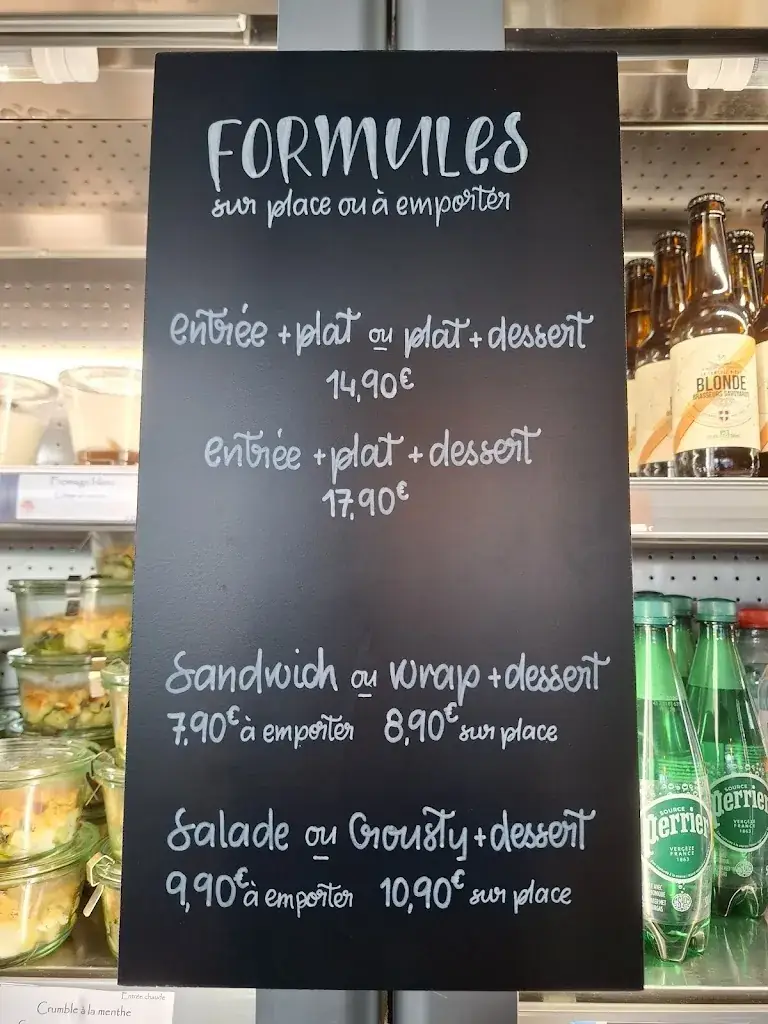 FORMULES
sur place ou à emporter
entrée + plat ou plat + dessert
14,90€
entrée + plat + dessert
17,90€
Sandwich ou wrap + dessert
7,90€ à emporter 8,90€ sur place
Salade ou Crousty + dessert
9,90€ à emporter 10,90€ sur place
BLONDE
Fromage blanc
SOURCE
Perrier
VERGÈZE
FRANCE
1863
SOURCE
Perrier
VERGÈZE
FRANCE
1863
Entrée chaude
Crumble à la menthe